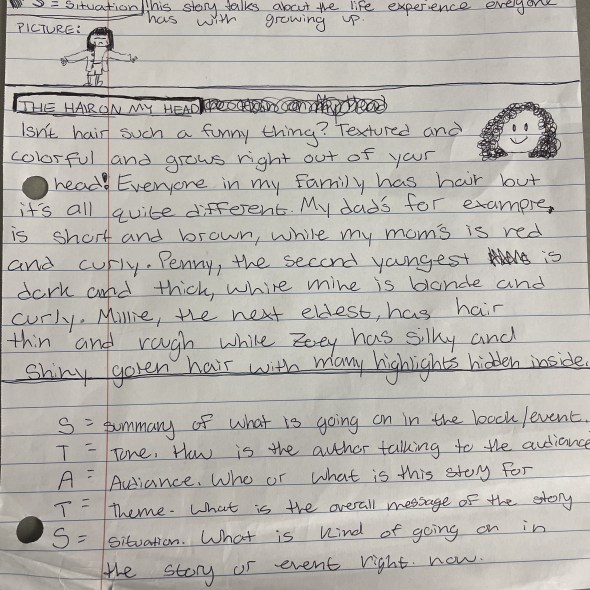 S = Situation This story talks about the life experience everyone
has with growing up.
PICTURE:
THE HAIR ON MY HEAD
Isn't hair such a funny thing? Textured and
colorful and grows right out of your
head! Everyone in my family has hair but
it's all quite different. My dad's for example,
is short and brown, while my mom's is red
and curly. Penny, the second youngest is
dark and thick, while mine is blonde and
curly. Millie, the next eldest, has hair
thin and rough while Zoey has silky and
shiny golen hair with many highlights hidden inside.
S = summary of what is going on in the book/event.
T = Tone. How is the author talking to the audiance
A = Audiance. Who or what is this story for
T = Theme. What is the overall message of the story
S = Situation. What is kind of going on in
the story or event right now.